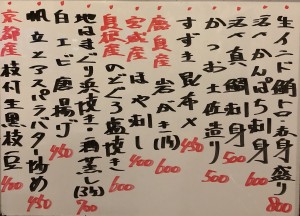 生インド鮪トロ赤身盛り 800
活〆かんぱち刺身 600
活〆真鯛刺身 500
かつお土佐造り 500
すずき昆布〆 450
岩がき(1ヶ) 600
宮城産 400
島根産 のどぐろ塩焼き 600
地はまぐり浜焼き・酒蒸し(3ヶ) 700
白エビ唐揚げ 450
帆立とアスパラバター炒め 450
京都産 枝付生黒枝豆 400